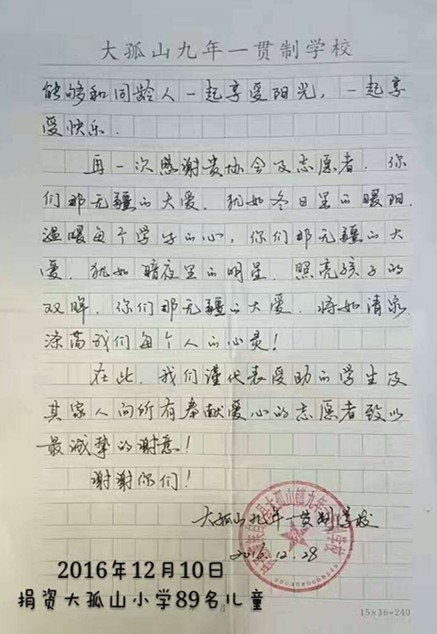 大孤山九年一贯制学校
能够和同龄人一起享受阳光，一起享
受快乐．
再一次感谢贵协会及志愿者．你
们那无疆的大爱．犹如冬日里的暖阳．
温暖每个学生的心，你们那无疆的大
爱．犹如暗夜里的明星．照亮孩子的
双眸．你们那无疆的大爱．将如清泉．
涤荡我们每个人的心灵！
在此．我们谨代表受助的学生及
其家人向所有奉献爱心的志愿者致以
最诚挚的谢意！
谢谢你们！
大孤山九年一贯制学校
2016.12.28
2016年12月10日
捐资大孤山小学89名儿童
15×16=240